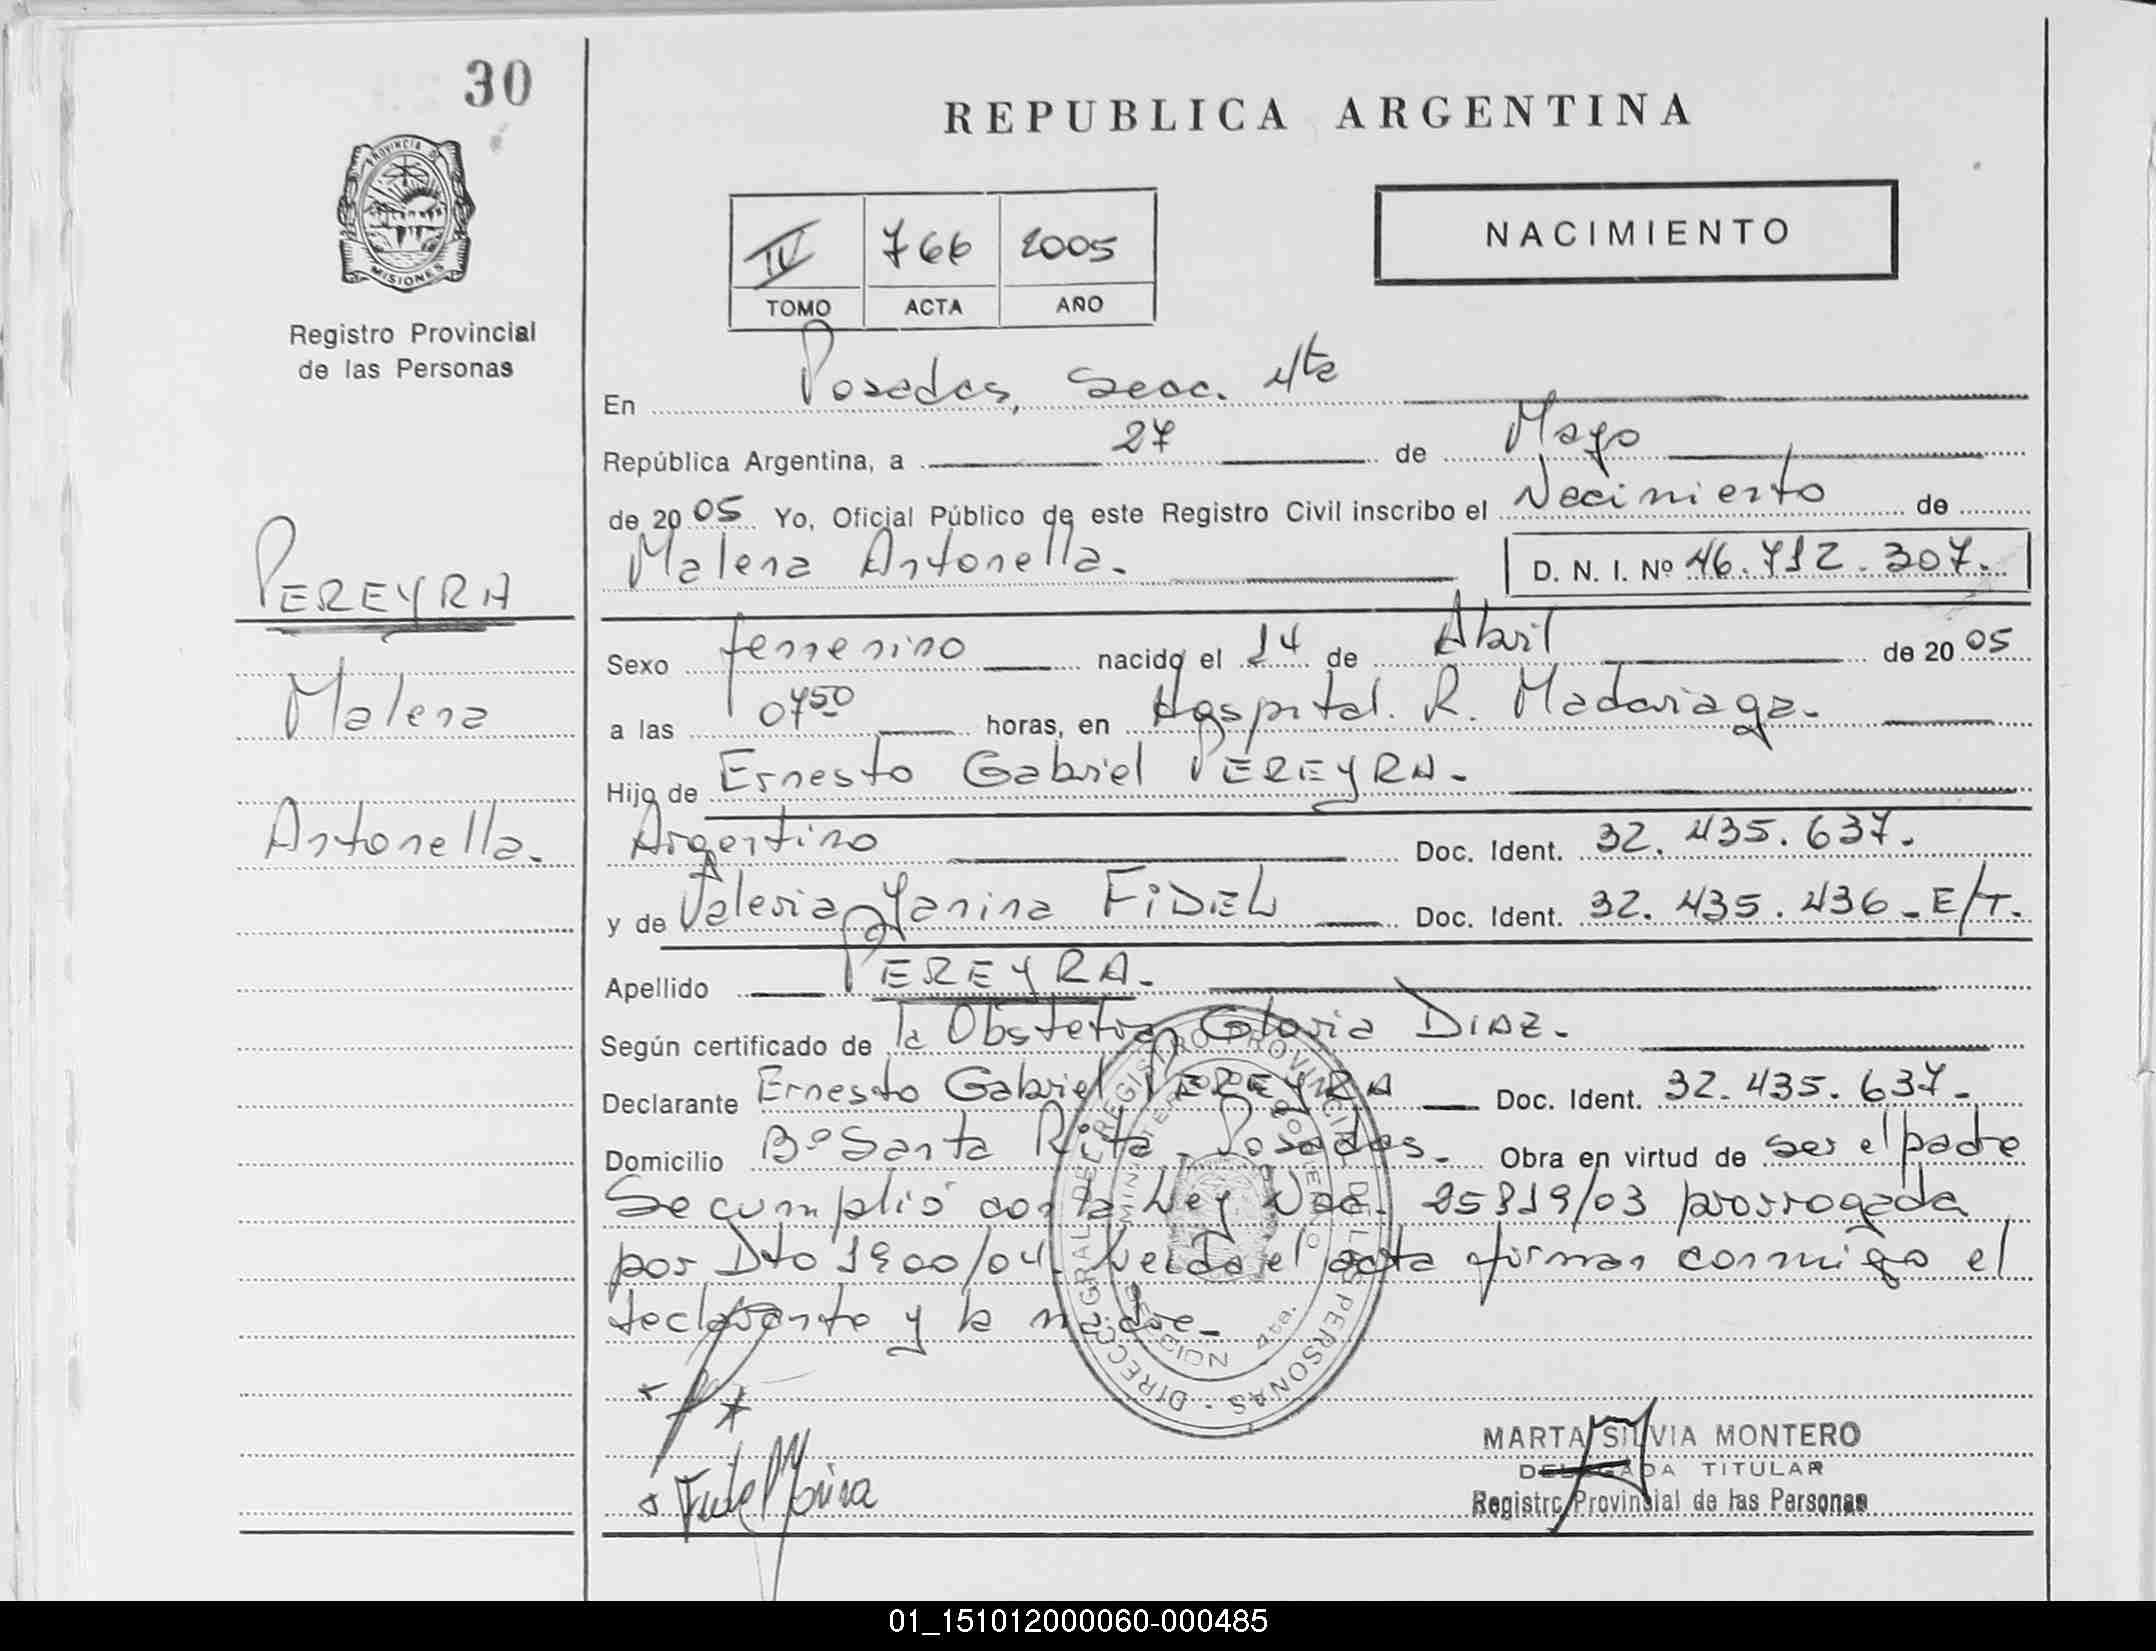 30
PROVINCIA DE
MISIONES
Registro Provincial
de las Personas
PEREYRA
Malena
Antonella.
REPUBLICA ARGENTINA
NACIMIENTO
IV 766 2005
TOMO ACTA AÑO
En Posadas, Secc. 4ta
República Argentina, a 27 de Mayo
de 2005 Yo, Oficial Público de este Registro Civil inscribo el Nacimiento de
Malena Antonella. D. N. I. Nº 46.712.307.
Sexo femenino nacido el 14 de Abril de 2005
a las 0750 horas, en Hospital. R. Madariaga.
Hijo de Ernesto Gabriel PEREYRA.
Argentino Doc. Ident. 32.435.637.
y de Valeria Yanina FIDEL Doc. Ident. 32.435.436_E/T.
Apellido PEREYRA.
Según certificado de la Obstetra Gloria DIAZ.
Declarante Ernesto Gabriel PEREYRA Doc. Ident. 32.435.637.
Domicilio Bº Santa Rita - Posadas. Obra en virtud de ser el padre
Se cumplió con la Ley Nac. 25819/03 prorrogada
por Dto 1900/04. Leida el acta firman conmigo el
declarante y la madre_
DIRECC. GRAL. DEL REGISTRO PROVINCIAL DE LAS PERSONAS
SECCION 4ta.
MARTA SILVIA MONTERO
DELEGADA TITULAR
Registro Provincial de las Personas
01_151012000060-000485